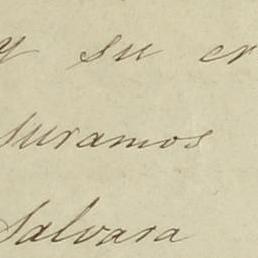 y su er
suramos
Salvara